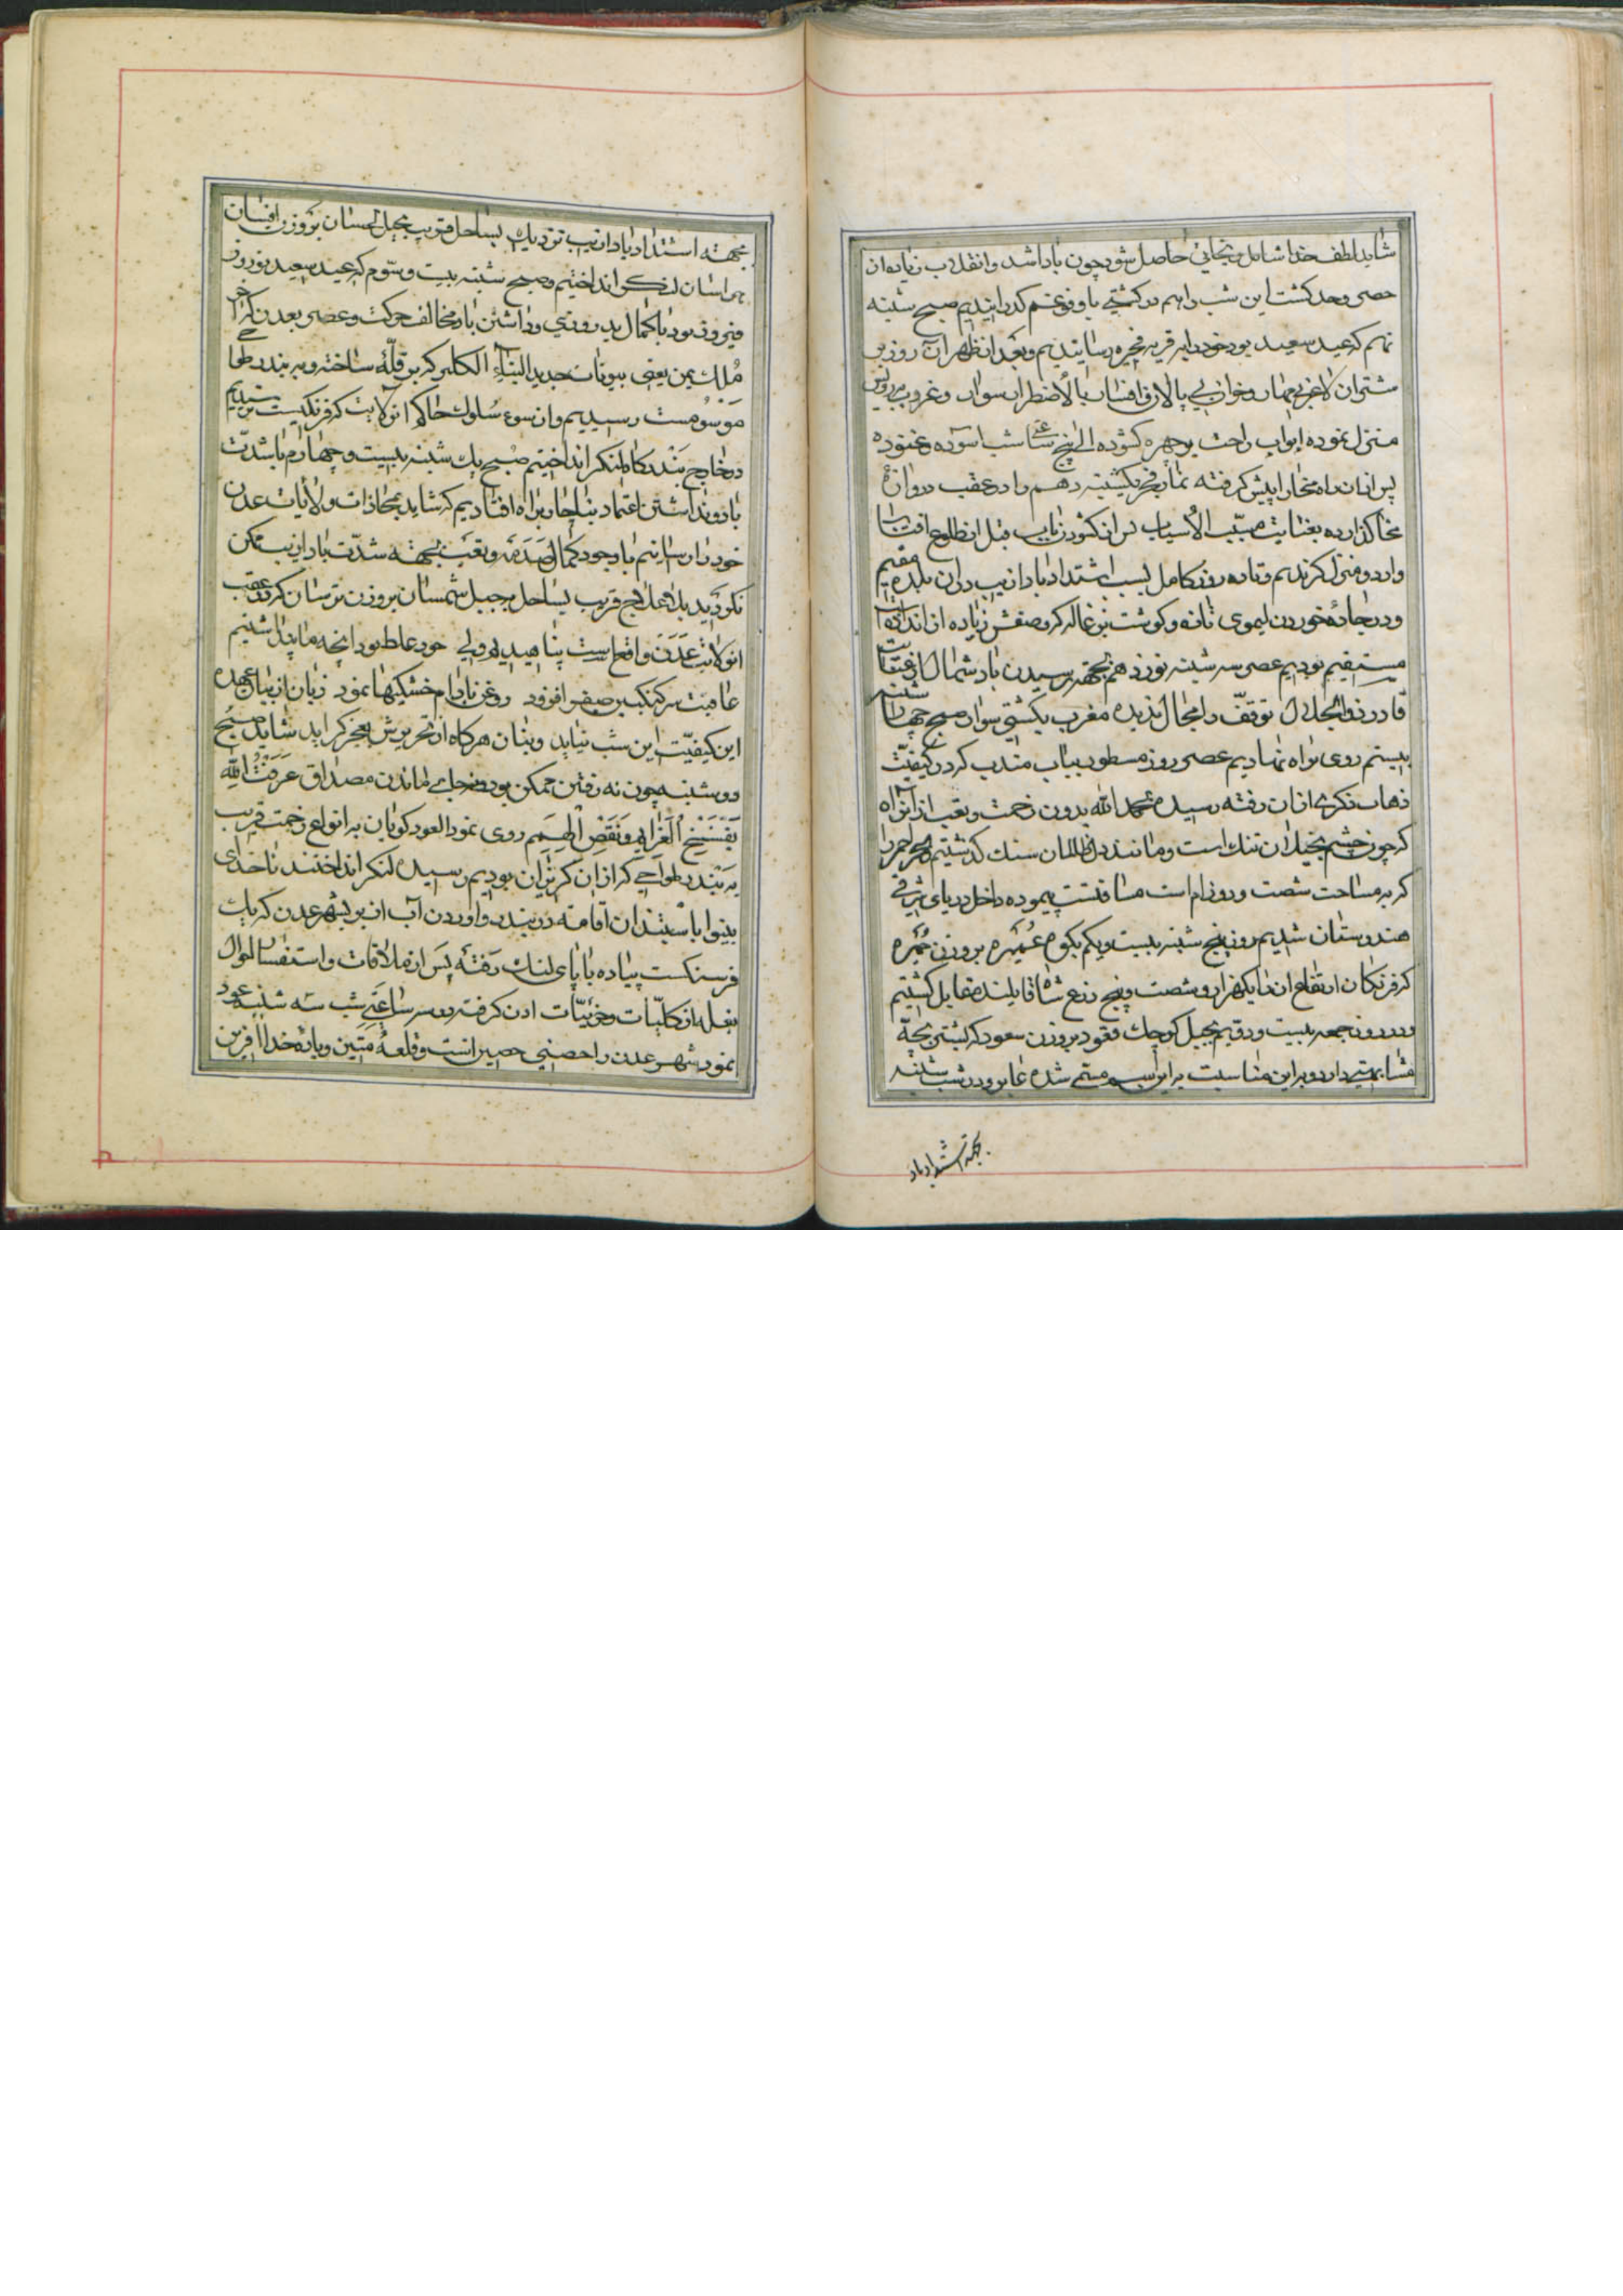 شاید لطف خدا شامل و نجاتی حاصل شود چون باد اشد و انقلاب زیاده از
حصر و حد گشت این شب را هم در کشتی با وفور غم گذرانیدیم صبح شنبه
نهم که عید سعید بود خود را به قریه فجیره رسانیدیم و بعد از ظهر آن روز بر
شتران لاغر بی مهار و خران بی پالان افسار بالاضطرار سوار و غروب
منزل نموده ابواب راحت بر چهره گشوده الی پنج ساعت شب آسوده و غنوده
پس از آن راه مخا را پیش گرفته نماز فجر یکشنبه دهم را در عقب دروازه
مخا گذارده بعنایت مسبب الاسباب در آن کشور قبل از طلوع آفتاب
وارد و منزل گزیدیم و تا ده روز کامل بسبب اشتداد باد ازیب در آن بلده مقیم
و در جاده خوردن لیموی تازه و گوشت بزغاله که وصفش زیاده از اندازه
مستقیم بودیم عصر سه شنبه نوزدهم بجهة رسیدن باد شمال از عنایت
قادر ذو الجلال توقف را مجال ندیده مغرب بکشتی سوار صبح چهار شنبه
بیستم روی براه نهادیم عصر روز مسطور بباب مندب که در کیفیت
ذهاب ذکری از آن رفته رسیده بحمد الله بدون زحمت و تعب از آن راه
که چون چشم بخیلان تنگ است و مانند دل ظالمان سنگ گذشتیم بحر احمر را
که به مساحت شصت و روز ام است مسافتست پیموده داخل دریای شرقی
هندوستان شدیم روز پنج شنبه بیست و یکم بکوه عمیره بر وزن حمیره
که فرنگان ارتفاع آن را یکهزار و شصت و پنج ذرع شاه قایلند مقابل گشتیم
و در روز جمعه بیست و دویم بجبل کوچک فقود بر وزن سعود که بکشتی بچه
مشابهتی دارد و بر این مناسبت به این اسم مسمی شده عابر و در شب شنبه
بجهة اشتداد باد
بجهة اشتداد باد ازیب نزدیک بساحل قریب بجبل احسان بر وزن افسان
هراسان لنگر انداختیم و صبح شنبه بیست و سوم که عید سعید نوروز
فیروز بود با کمال بد روزی و داشتن باد مخالف حرکت و عصر بعدن
ملک یمن یعنی بیوتات جدید البناء انکلیز که بر قله ساخته و به بندر طواحی
موسوم است رسیدیم و از سوء سلوک حاکم آن ولایت که فرنگیست
در خارج بندرگاه لنگر انداختیم صبح یک شنبه بیست و چهارم با شدت
باد و نداشتن اعتماد بناچار براه افتادیم که شاید بمحاذات ولایات عدن
خود را رسانیم با وجود کمال صدمه و تعب بجهة شدت باد ازیب ممکن
نگردید بلا علاج قریب بساحل بجبل شمسان بر وزن ترسان که در عقب
آن ولایت عدن واقع است پناهیدیم ولی خود غلط بود آنچه ما پنداشتیم
عاقبت سرکنگبین صفرا فزود روغن بادام خشکیها نمود زبان از بیان عهده
این کیفیت این شب نیاید و بنان هرگاه از تحریرش بعجز گراید شاید صبح
دوشنبه چون نه رفتن ممکن بود و نه جای ماندن مصداق عرفت الله
بفسخ العزایم و نقض الهمم روی نمود العود گویان به انواع زحمت قریب
به بندر طواحی که از آن گریزان بودیم رسیده لنگر انداختند ناخدای
بینوا باستیذان اقامت در بندر و آوردن آب از بر بشهر عدن که یک
فرسنگست پیاده با پای لنگ رفته پس از ملاقات و استفسار احوال
بنگله از کلیات و جزئیات اذن گرفته دو سه ساعت شب سه شنبه عود
نمود شهر عدن را حصنی حصین است و قلعه متین و یا نه خدا آفرین